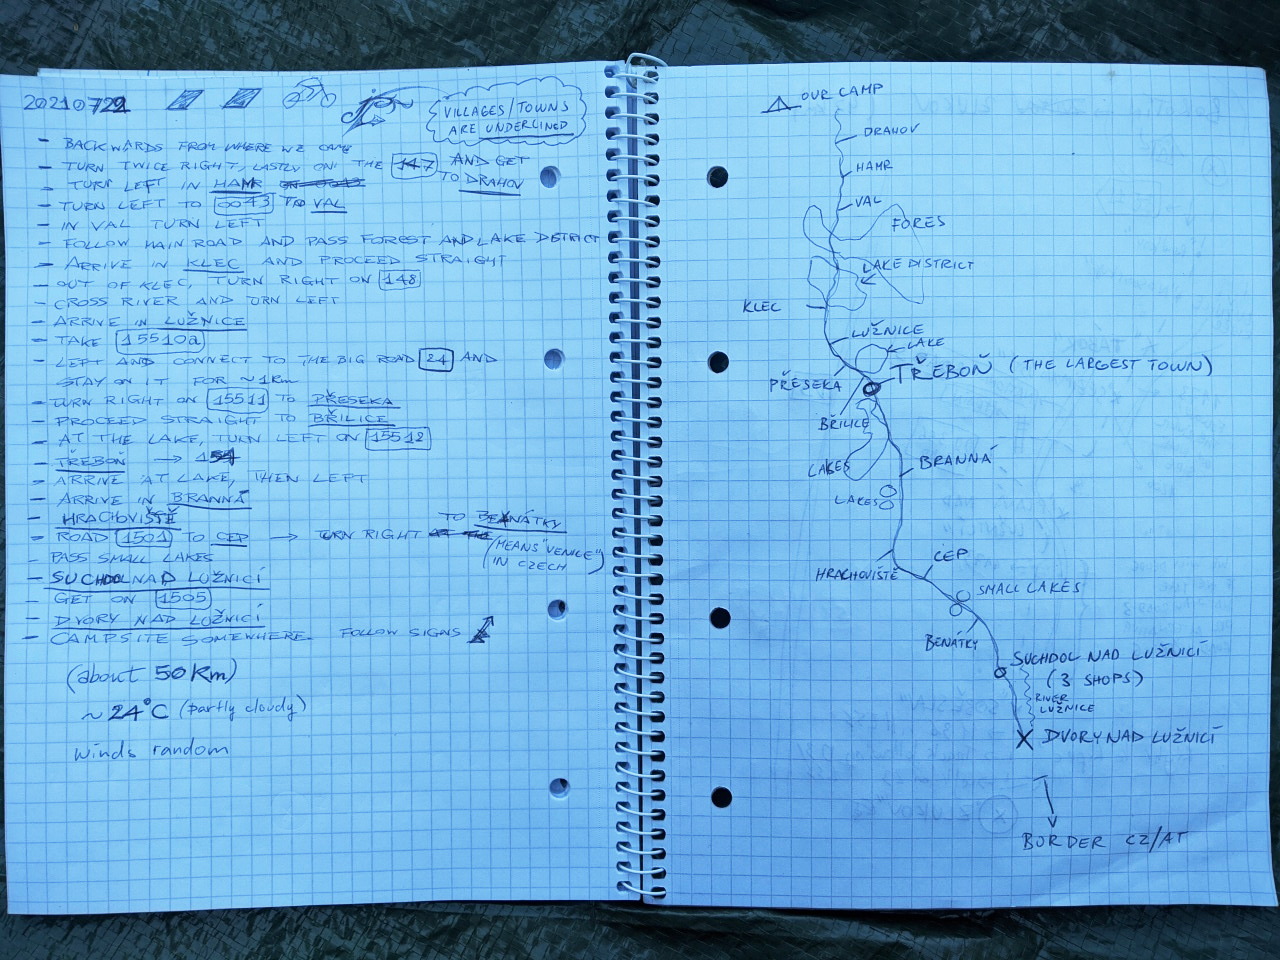 20210722
VILLAGES/TOWNS
ARE UNDERLINED
- BACKWARDS FROM WHERE WE CAME
- TURN TWICE RIGHT, LASTLY ON THE 147 AND GET
TO DRAHOV
- TURN LEFT IN HAMR
- TURN LEFT TO 0043 TO VAL
- IN VAL TURN LEFT
- FOLLOW MAIN ROAD AND PASS FOREST AND LAKE DISTRICT
- ARRIVE IN KLEC AND PROCEED STRAIGHT
- OUT OF KLEC, TURN RIGHT ON 148
- CROSS RIVER AND URN LEFT
- ARRIVE IN LUŽNICE
- TAKE 15510a
- LEFT AND CONNECT TO THE BIG ROAD 24 AND
STAY ON IT FOR ~1km
- TURN RIGHT ON 15511 TO PŘESEKA
- PROCEED STRAIGHT TO BŘILICE
- AT THE LAKE, TURN LEFT ON 15512
- TŘEBOŇ →
- ARRIVE AT LAKE, THEN LEFT
- ARRIVE IN BRANNÁ
- HRACHOVIŠTĚ
- ROAD 1501 TO CEP → TURN RIGHT TO BENÁTKY
(MEANS "VENICE"
IN CZECH)
- PASS SMALL LAKES
- SUCHDOL NAD LUŽNICÍ
- GET ON 1505
- DVORY NAD LUŽNICÍ
- CAMPSITE SOMEWHERE FOLLOW SIGNS
(about 50 km)
~ 24°C (partly cloudy)
winds random
OUR CAMP
DRAHOV
HAMR
VAL
FORES
LAKE DISTRICT
KLEC
LUŽNICE
LAKE
TŘEBOŇ (THE LARGEST TOWN)
PŘESEKA
BŘILICE
LAKES
BRANNÁ
LAKES
CEP
HRACHOVIŠTĚ
SMALL LAKES
BENÁTKY
SUCHDOL NAD LUŽNICÍ
(3 SHOPS)
RIVER
LUŽNICE
DVORY NAD LUŽNICÍ
BORDER CZ/AT